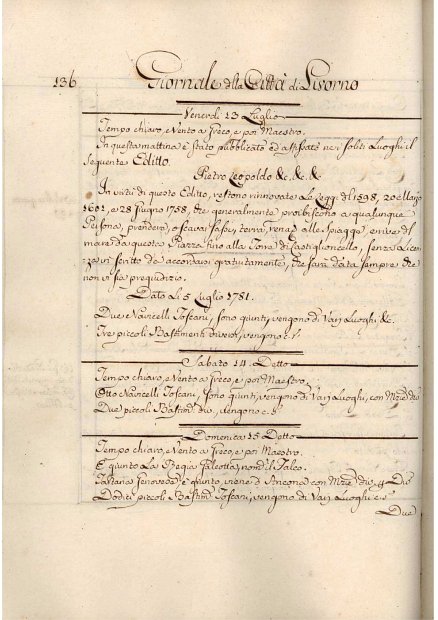 136 Giornale della Città di Livorno
Venerdì 13 Luglio
Tempo chiaro, e Vento a Greco, e poi Maestro.
In questa mattina è stato pubblicato ed affisso nei soliti Luoghi il
seguente Editto.
Pietro Leopoldo &c. &c. &c.
In virtù di questo Editto, restono rinnovate le Leggi del 1598, 20 Marzo
1601, e 28 Giugno 1758, che generalmente proibiscono a qualunque
Persona, prendere, o scavar sassi, terra, rena, alle spiagge, e rive del
mare da questa Piazza fino alla Torre di Castiglioncello, senza licen-
za in scritto da accordarsi gratuitamente, che sarà data sempre che
non vi sia pregiudizio.
Dato li 5 Luglio 1781.
Due Navicelli Toscani, sono giunti, vengono di Varj Luoghi &c.
Tre piccoli Bastimenti diversi, vengono c.s.
Sabato 14 Detto
Tempo chiaro, e Vento a Greco, e poi Maestro.
Otto Navicelli Toscani, sono giunti, vengono di Varj Luoghi, con Mzie div.
Due piccoli Bastim. div., vengono c.s.
Domenica 15 Detto
Tempo chiaro, e Vento a Greco, e poi Maestro.
È giunto La Regia Galeotta, nom. il Falco.
Tartana Genovese è giunto, viene d'Ancona con Mzie div.
Dodici piccoli Bastim. Toscani, vengono di Varj Luoghi
Due